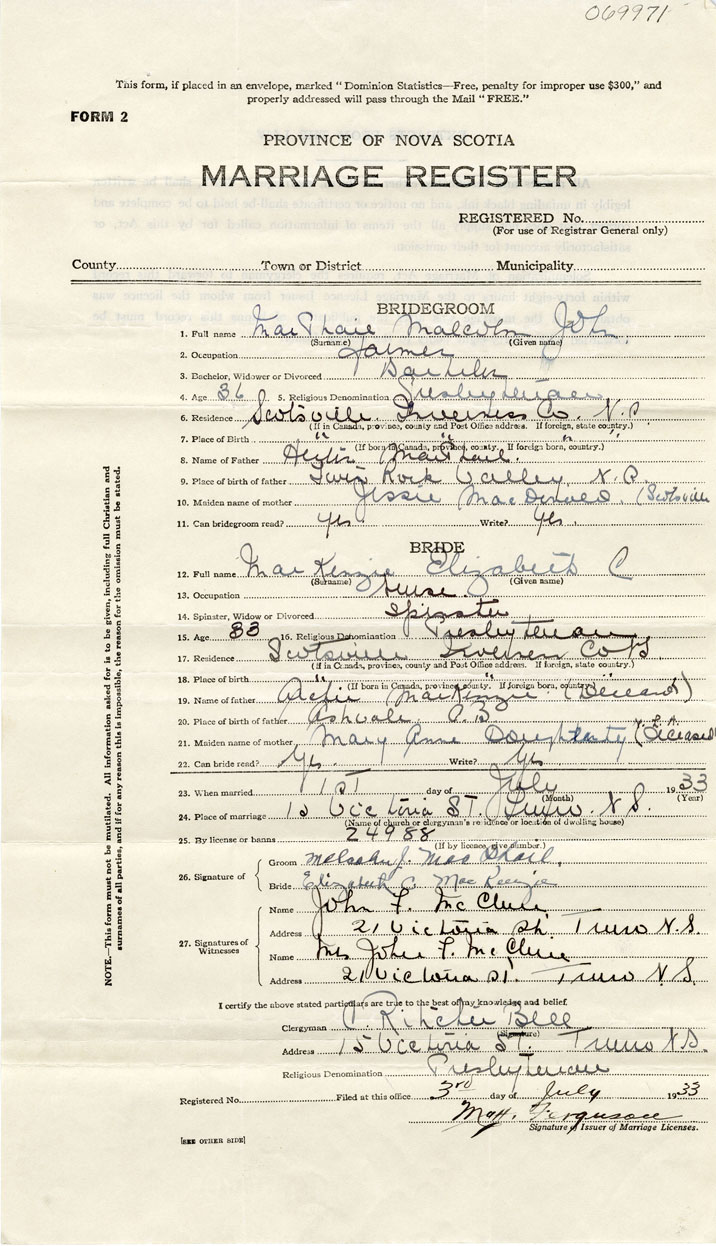 069971
This form, if placed in an envelope, marked "Dominion Statistics—Free, penalty for improper use $300," and
properly addressed will pass through the Mail "FREE."
FORM 2
PROVINCE OF NOVA SCOTIA
MARRIAGE REGISTER
REGISTERED No.
(For use of Registrar General only)
County Town or District Municipality
BRIDEGROOM
1. Full name MacPhail Malcolm John
(Surname) (Given name)
2. Occupation Farmer
3. Bachelor, Widower or Divorced Bachelor
4. Age 36 5. Religious Denomination Presbyterian
6. Residence Scotsville Inverness Co. N.S.
(If in Canada, province, county and Post Office address. If foreign, state country.)
7. Place of Birth " " " "
(If born in Canada, province, county. If foreign born, country.)
8. Name of Father Hector MacPhail
9. Place of birth of father Twin Rock Valley, N.S.
10. Maiden name of mother Jessie MacDonald (Scotsville
11. Can bridegroom read? Yes Write? Yes
BRIDE
12. Full name MacKenzie Elizabeth C
(Surname) (Given name)
13. Occupation Nurse
14. Spinster, Widow or Divorced Spinster
15. Age 33 16. Religious Denomination Presbyterian
17. Residence Scotsville Inverness Co N.S.
(If in Canada, province, county and Post Office address. If foreign, state country.)
18. Place of birth " "
(If born in Canada, province, county. If foreign born, country.)
19. Name of father Archie MacKenzie (Deceased)
20. Place of birth of father Ashdale, C.B.
21. Maiden name of mother Mary Anne Dougherty (Deceased) U.S.A.
22. Can bride read? Yes Write? Yes
23. When married 1st day of July 1933
(Month) (Year)
24. Place of marriage 15 Victoria St. Truro. N.S.
(Name of church or clergyman's residence or location of dwelling house)
25. By license or banns 24988
(If by licence, give number.)
26. Signature of
Groom Malcolm J. MacPhail
Bride Elizabeth C. MacKenzie
27. Signatures of Witnesses
Name John F. McClure
Address 21 Victoria St. Truro N.S.
Name Mrs John F. McClure
Address 21 Victoria St. Truro N.S.
I certify the above stated particulars are true to the best of my knowledge and belief.
Clergyman C. Ritchie Bell
(Signature)
Address 15 Victoria St. Truro N.S.
Religious Denomination Presbyterian
Registered No. Filed at this office 3rd day of July 1933
Ferguson
Signature of Issuer of Marriage Licenses.
[SEE OTHER SIDE]
NOTE.—This form must not be mutilated. All information asked for is to be given, including full Christian and
surnames of all parties, and if for any reason this is impossible, the reason for the omission must be stated.